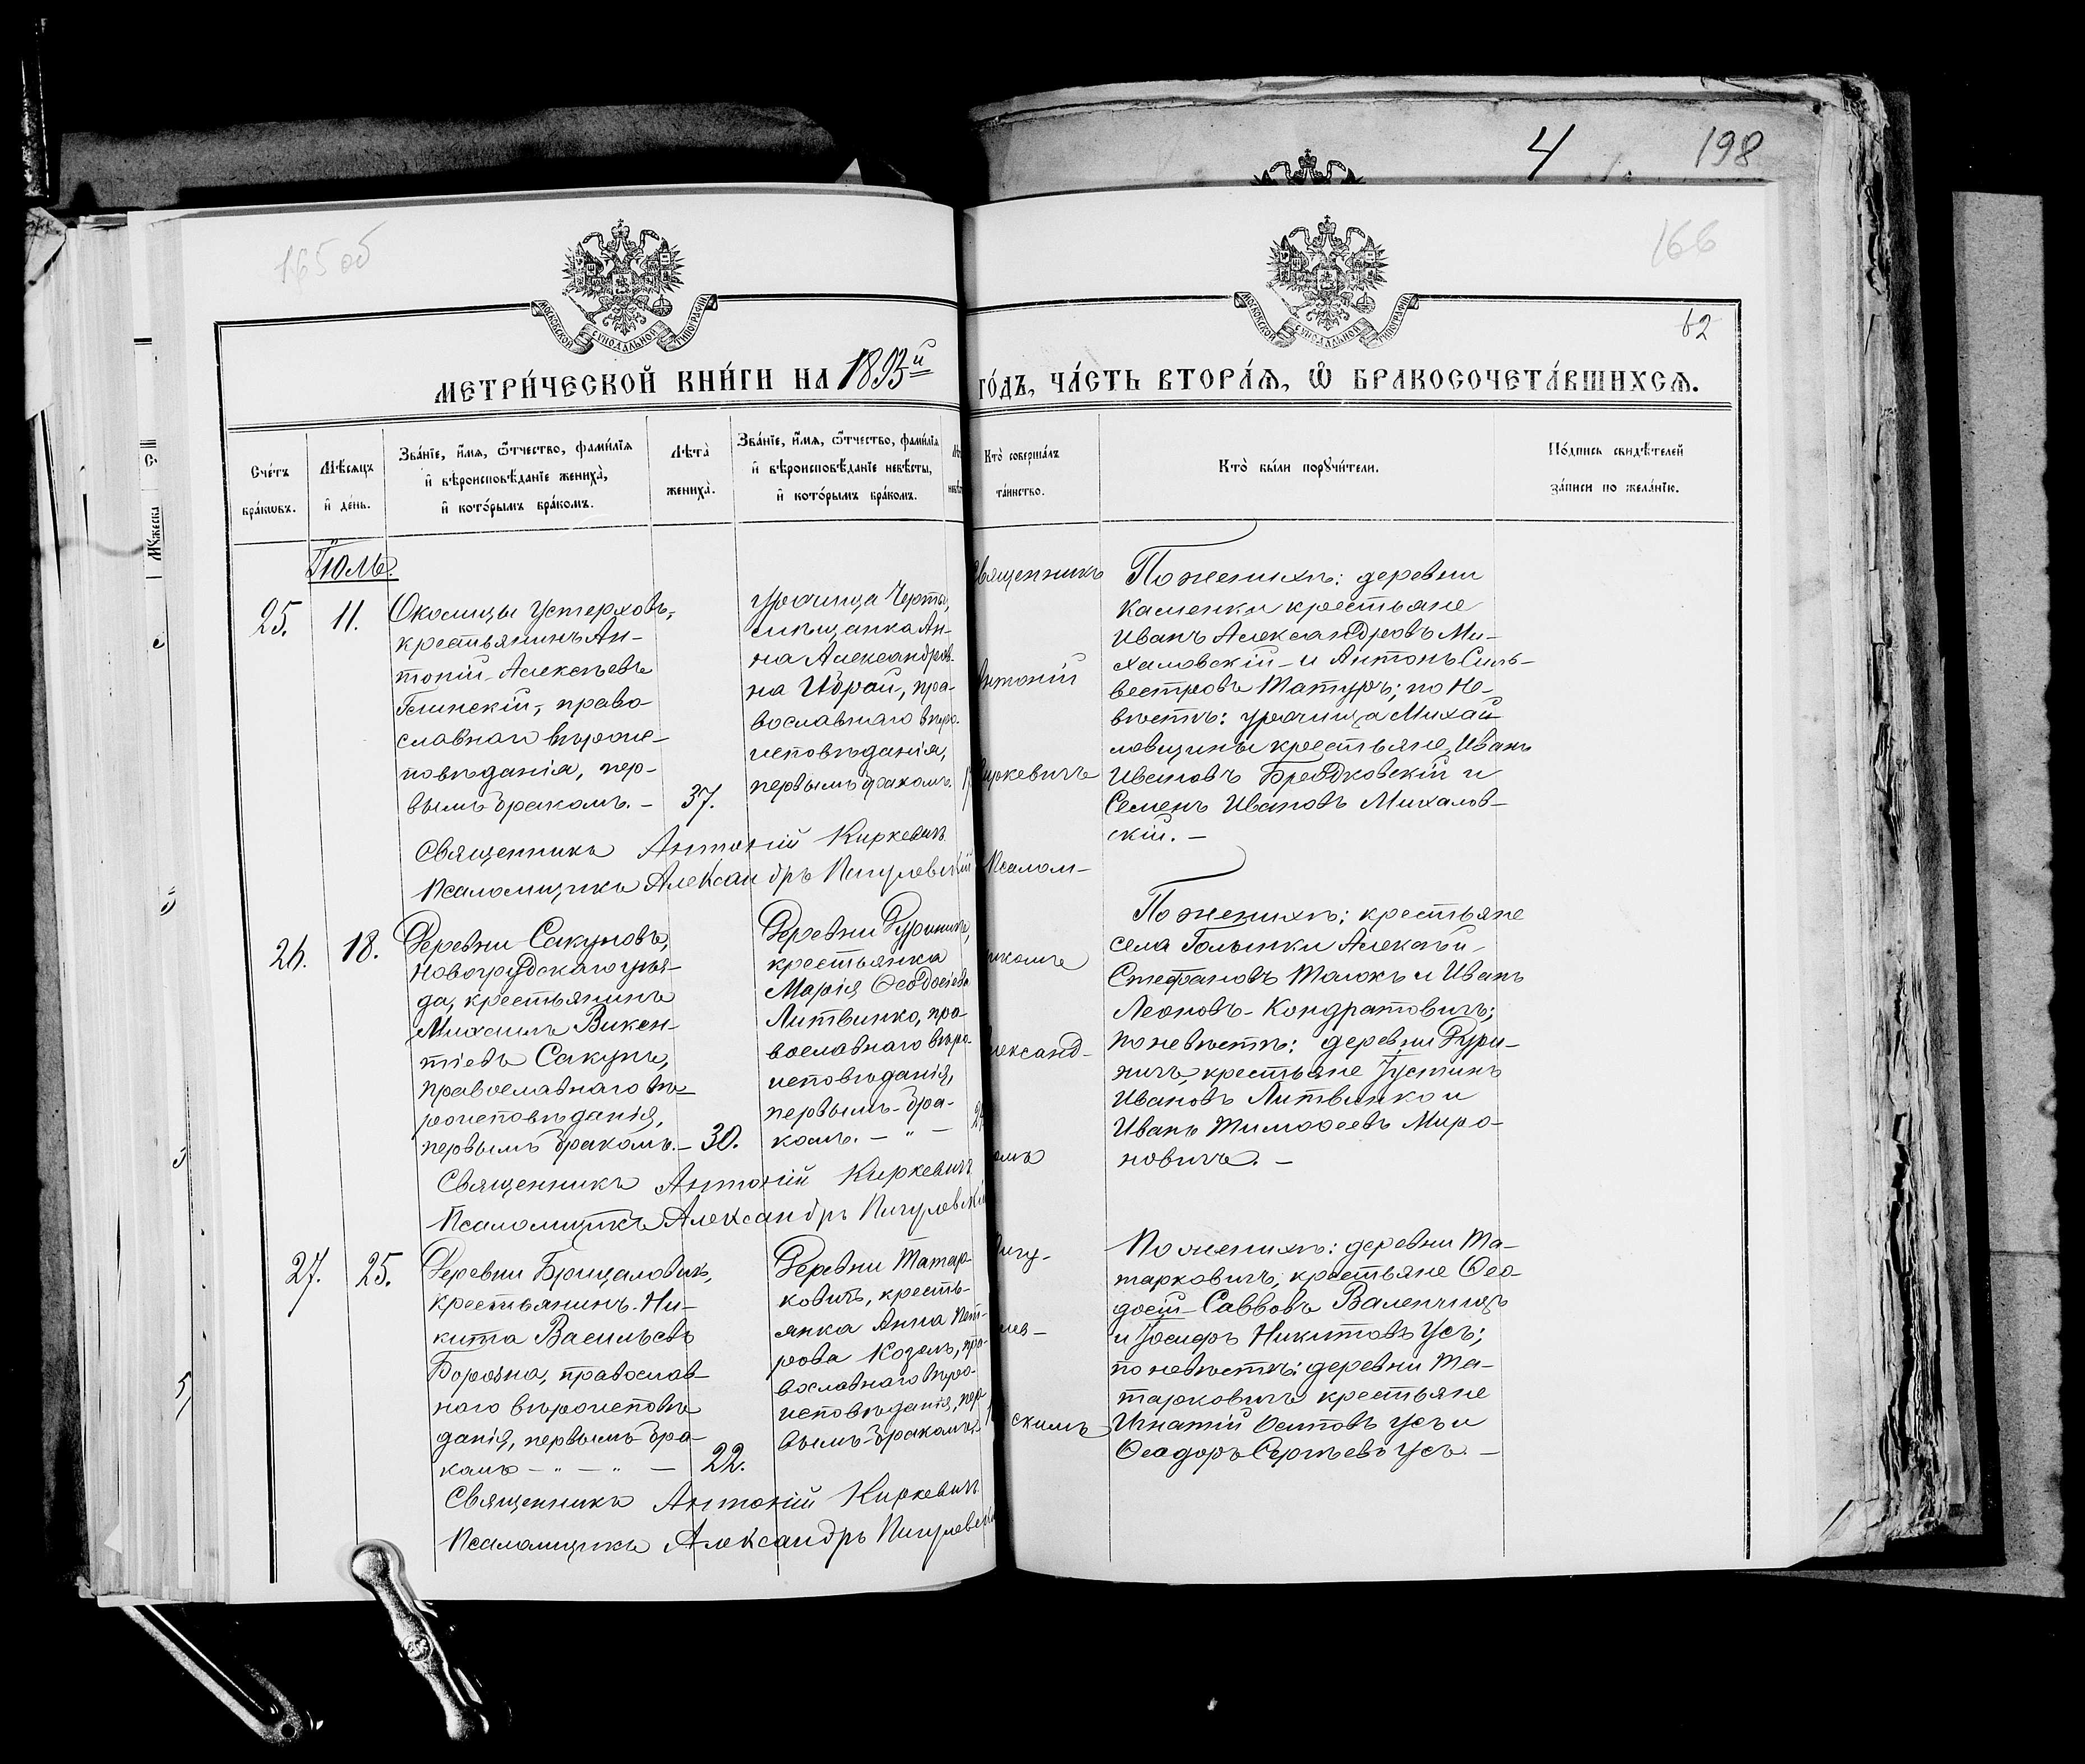 4
198
165 об
166
62
МОСКОВСКОЙ СѴНОДАЛЬНОЙ ТИПОГРАФІИ
МОСКОВСКОЙ СѴНОДАЛЬНОЙ ТИПОГРАФІИ
МЕТРИ́ЧЕСКОЙ КНИ́ГИ НА 1893й
ГО́ДЪ, ЧА́СТЬ ВТОРА́Ѧ, Ѽ БРАКОСОЧЕТА́ВШИХСѦ.
Сче́тъ
бра́кѡвъ.
Мѣ́сѧцъ
и҆ де́нь.
Зва́нїе, и҆́мѧ, ѻ҆́тчество, фами́лїѧ
и҆ вѣроисповѣ́данїе жениха̀,
и҆ кото́рымъ бра́комъ.
Лѣта̀
жениха̀.
Зва́нїе, и҆́мѧ, ѻ҆́тчество, фами́лїѧ
и҆ вѣроисповѣ́данїе невѣ́сты,
и҆ кото́рымъ бра́комъ.
Кто̀ соверша́лъ
та́инство.
Кто̀ бы́ли порꙋчи́тели.
По́дпись свидѣ́телей
за́писи по жела́нїю.
Іюль.
25.
11.
Околицы Устерховъ,
крестьянинъ Ан-
тоній Алексѣевъ
Глинскій, право
славнаго вѣроис-
повѣданія, пер-
вымъ бракомъ. –
37.
урочища Черты,
мѣщанка Ан-
на Александров-
на Юрай, пра-
вославнаго вѣро-
исповѣданія,
первымъ бракомъ.
Священникъ
Антоній
Киркевичъ
Псалом-
По женихѣ: деревни
Каменки крестьяне
Иванъ Александровъ Ми-
халовскій и Антонъ Силь-
вестровъ Татуръ; по не-
вѣстѣ: урочища Михай
ловщины крестьяне, Иванъ
Ивановъ Бродковскій и
Семенъ Ивановъ Михалов-
скій. –
Священникъ Антоній Киркевичъ
Псаломщикъ Александръ Пигулевскій
26.
18.
Деревни Сакуновъ,
Новогрудскаго уѣз-
да, крестьянинъ
Михаилъ Викен-
тіевъ Сакунъ,
православнаго вѣ-
роисповѣданія,
первымъ бракомъ. –
30.
Деревни Дуриничъ,
крестьянка
Марія Ѳеодосіева
Литвинко, пра-
вославнаго вѣро-
исповѣданія,
первымъ бра-
комъ. – " –
щикомъ
Александ-
ромъ
По женихѣ: крестьяне
села Голынки Алексѣй
Стефановъ Толокъ и Иванъ
Леоновъ Кондратовичъ;
по невѣстѣ: деревни Дури-
ничъ, крестьяне Іустинъ
Ивановъ Литвинко и
Иванъ Тимоѳеевъ Миро-
новичъ. –
Священникъ Антоній Киркевичъ
Псаломщикъ Александръ Пигулевскій
27.
25.
Деревни Брицаловичъ,
крестьянинъ Ни-
кита Васильевъ
Боровна, православ-
наго вѣроисповѣ
данія, первымъ бра-
комъ – " – " –
22.
Деревни Татар
ковичъ, кресть-
янка Анна Пет-
рова Козелъ, пра-
вославнаго вѣро-
исповѣданія, пер
вымъ бракомъ.
Пигу-
лев-
скимъ
По женихѣ: деревни Та-
тарковичъ, крестьяне Ѳео-
досій Саввовъ Валенчицъ
и Іосифъ Никитовъ Усъ;
по невѣстѣ: деревни Та-
тарковичъ крестьяне
Игнатій Осиповъ Усъ и
Ѳеодоръ Сергѣевъ Усъ. –
Священникъ Антоній Киркевичъ
Псаломщикъ Александръ Пигулевскій